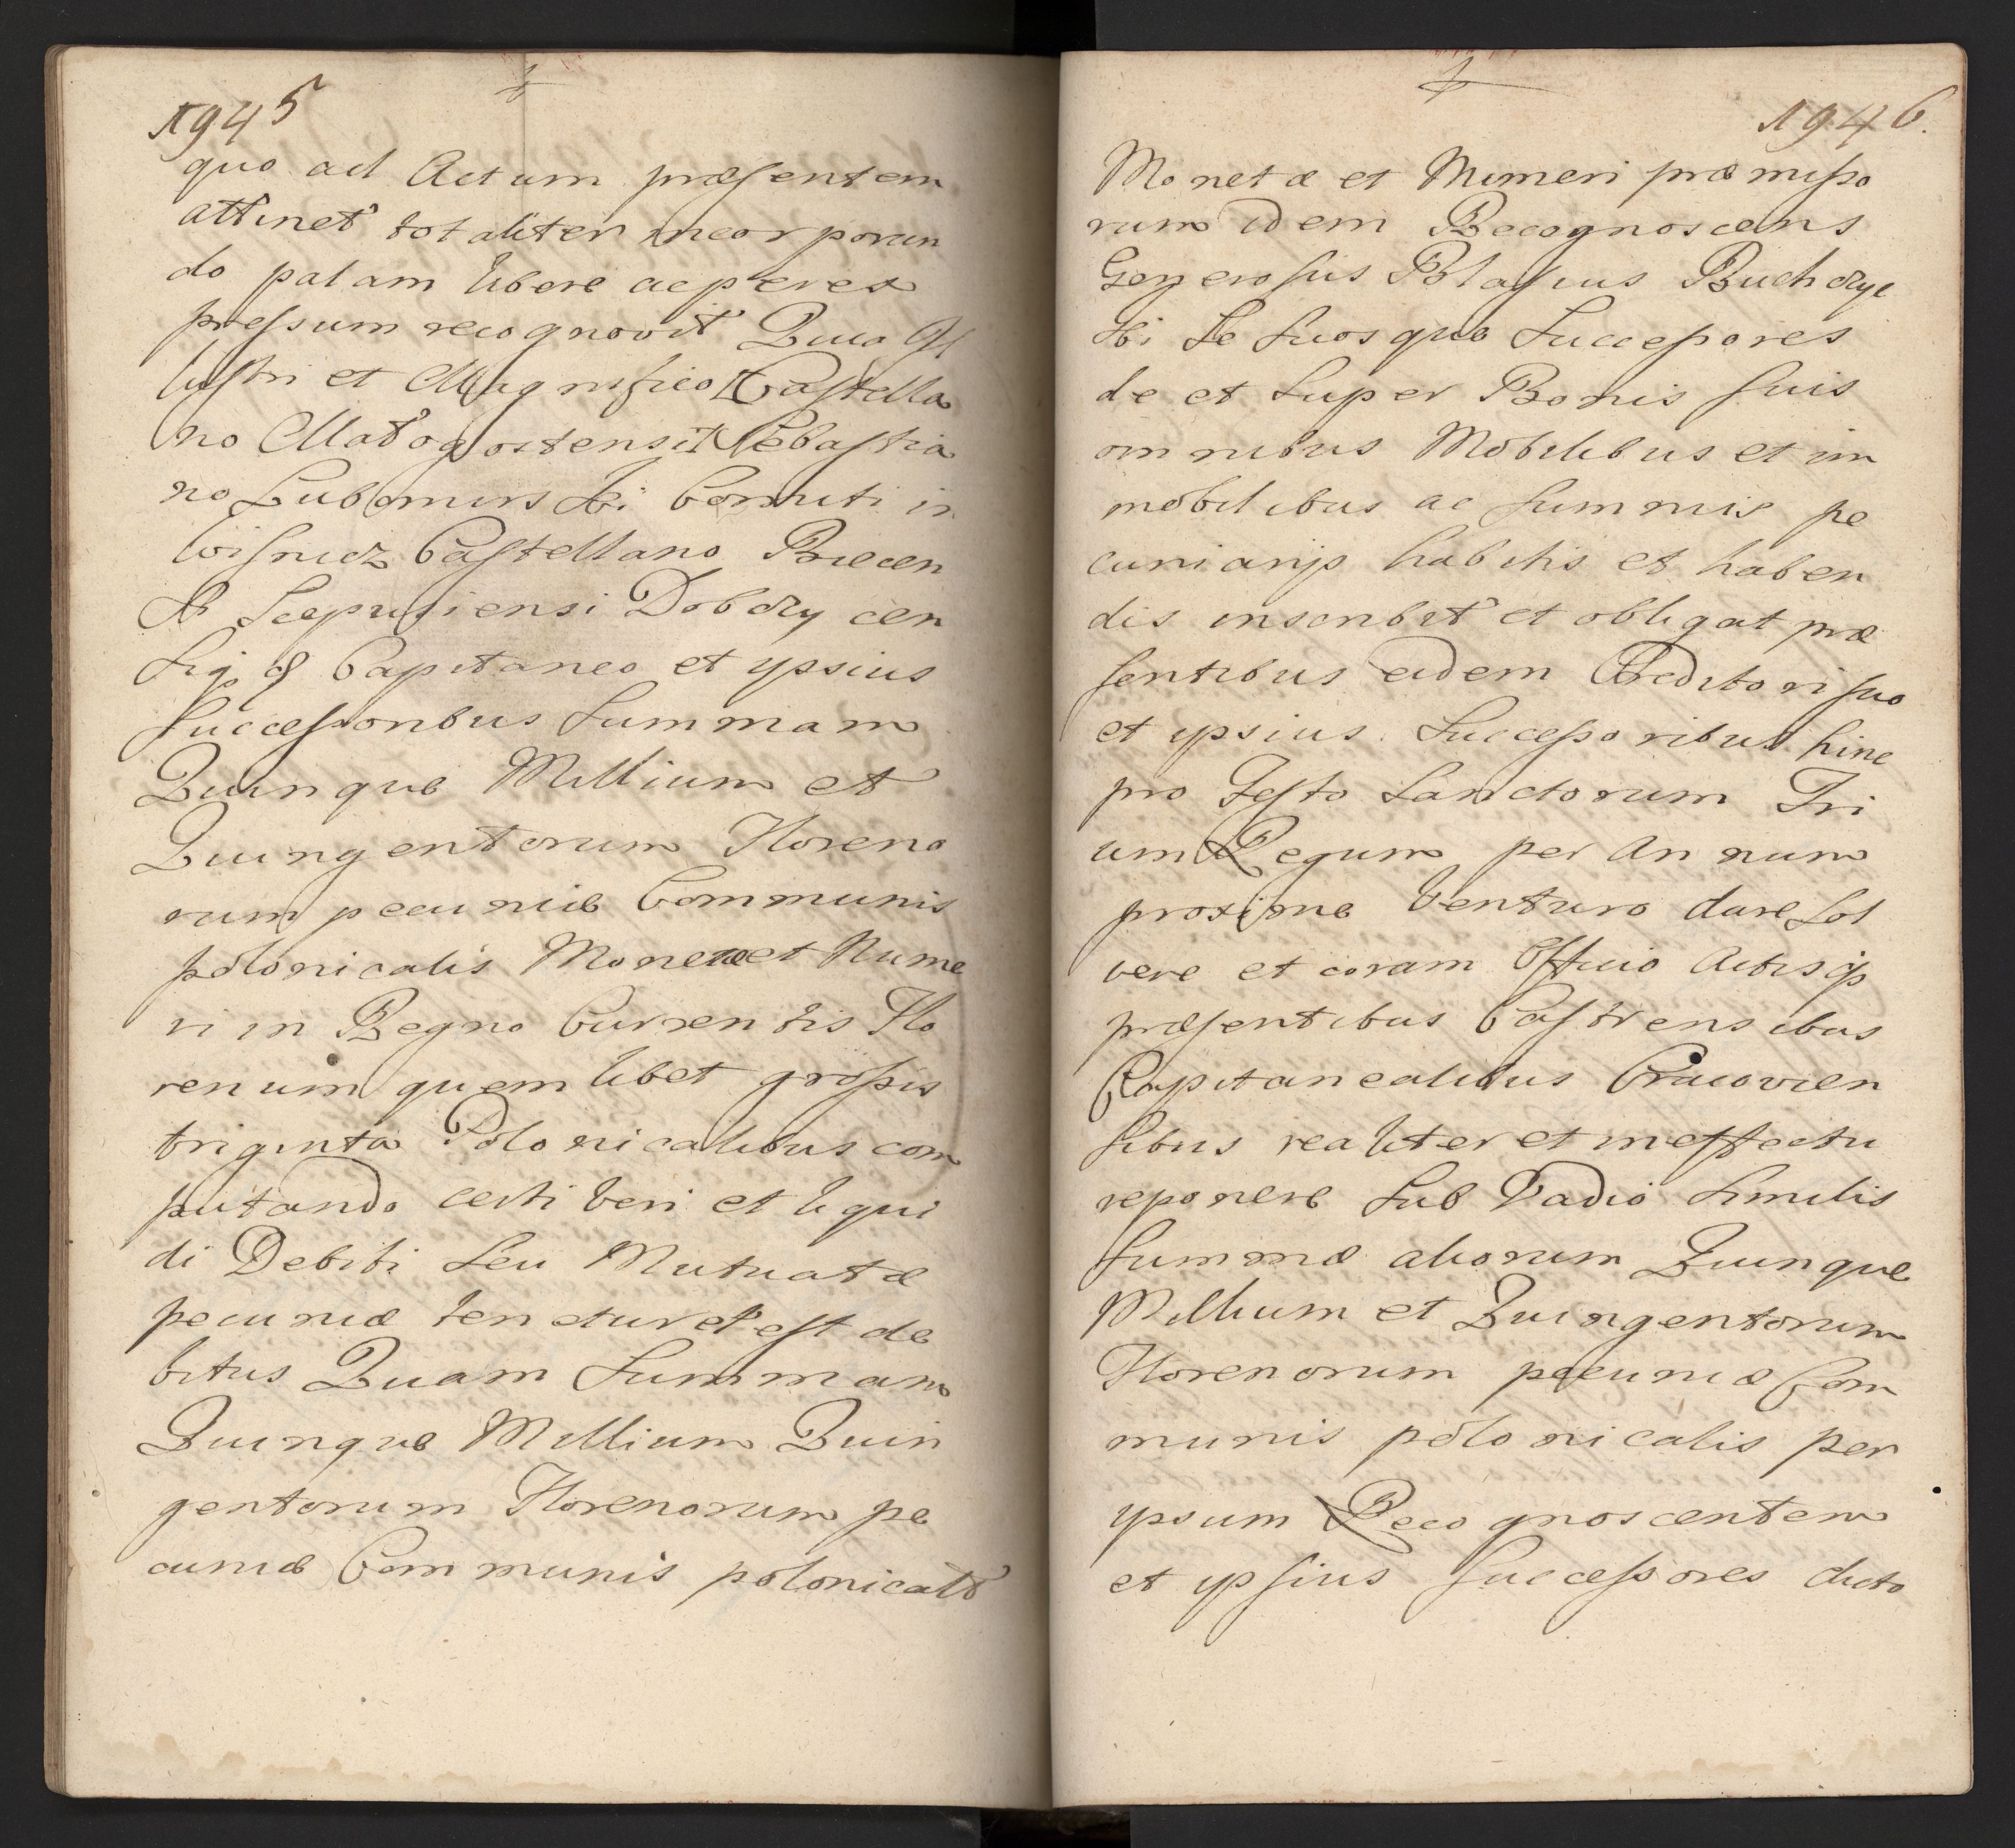 1945
quo ad Actum præsentem
attinet totaliter incorporan
do palam libere ac per ex
pressum recognovit Quia Il
lustri et Magnifico Castella
no Małogostensi Sebastia
no Lubomirski Comiti in
Wisnicz Castellano Biecen
Scepusiensi Dobczy cen
sijq Capitaneo et ypsius
Successoribus Summam
Quinque Millium et
Quingentorum Floreno
rum pecuniæ Communis
polonicalis Monetæ et Nume
ri in Regno Currentis Flo
renum quem libet grossis
triginta Polonicalibus com
putando certi veri et liqui
di Debiti Seu Mutuatæ
pecuniæ tenetur et est de
bitus Quam Summam
Quinque Millium Quin
gentorum Florenorum pe
cuniæ Communis polonicalis
1946.
Monetæ et Numeri præmisso
rum idem Recognoscens
Generosus Blasius Buchdzyc
ki Se Suosque Successores
de et Super Bonis Suis
omnibus Mobilibus et im
mobilibus ac Summis pe
cuniarijs habitis et haben
dis inscribit et obligat præ
sentibus eidem Creditori suo
et ypsius Successoribus hinc
pro Festo Sanctorum Tri
um Regum per Annum
proxime Venturo dare Sol
vere et coram Officio Actisq
præsentibus Castrensibus
Capitanealibus Cracovien
sibus realiter et in effectu
reponere Sub Vadio Similis
Summæ aliorum Quinque
Millium et Quingentorum
Florenorum pecuniæ Com
munis polonicalis per
ypsum Recognoscentem
et ypsius Successores dicto